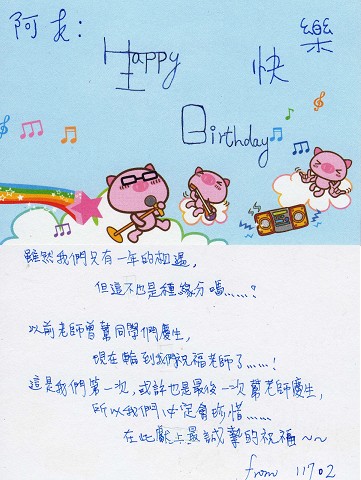 阿友:
Happy
快樂
Birthday
雖然我們只有一年的相遇,
但這不也是種緣分嗎……?
以前老師曾幫同學們慶生,
現在輪到我們祝福老師了……!
這是我們第一次,或許也是最後一次幫老師慶生,
所以我們一定會珍惜……
在此獻上最誠摯的祝福~~
from 11702